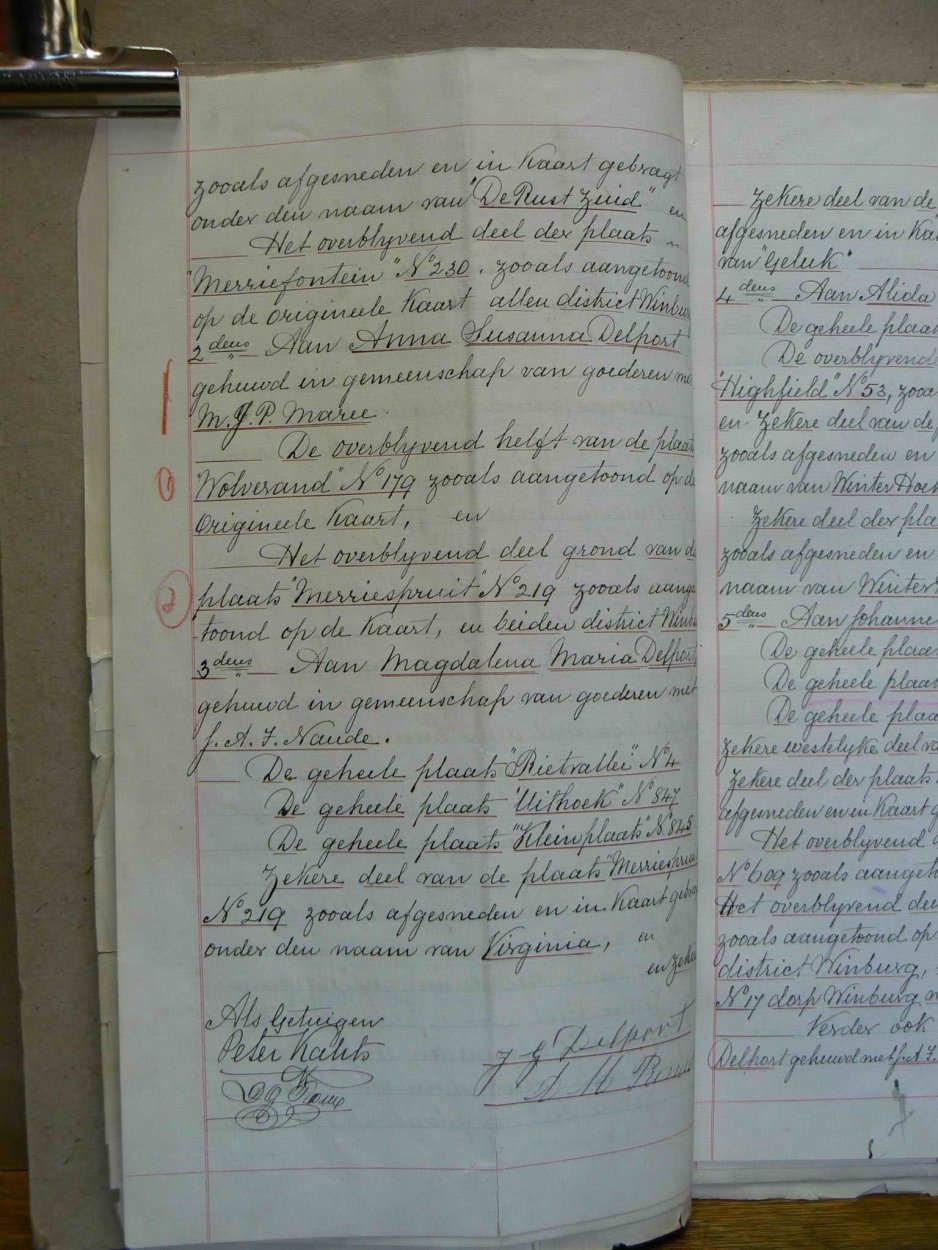 zooals afgesneden en in Kaart gebragt
onder den naam van "De Rust Zuid" en
Het overblyvend deel der plaats
"Merriefontein" No 230. zooals aangetoond
op de origineele Kaart allen district Winbu
2 dens Aan Anna Susanna Delport
gehuwd in gemeenschap van goederen me
M. J. P. Maree.
De overblyvend helft van de plaats
"Wolverand" No 179 zooals aangetoond op de
Origineele Kaart, en
Het overblyvend deel grond van de
plaats "Merriespruit" No 219 zooals aange
toond op de Kaart, en beiden district Winb
3 dens Aan Magdalena Maria Delport,
gehuwd in gemeenschap van goederen met
J. A. J. Naude.
De geheele plaats "Rietvallei" No 4
De geheele plaats "Uithoek" No 847
De geheele plaats "Kleinplaats" No 845
Zekere deel van de plaats "Merriespruit
No 219 zooals afgesneden en in Kaart gebra
onder den naam van Virginia, en
en zeker
Als Getuigen
Peter
J J Delport
Zekere deel van de
afgesneden en in Kaa
van "Geluk"
4 dens Aan Alida
De geheele plaat
De overblyvend
"Highfield" No 53, zooa
en Zekere deel van de p
zooals afgesneden en
naam van Winter Hoek
Zekere deel der pla
zooals afgesneden en
naam van Winter
5 dens Aan Johanne
De geheele plaa
De geheele plaat
De geheele plaa
Zekere westelyke deel v
Zekere deel der plaats
afgesneden en in Kaart g
Het overblyvend d
No 609 zooals aanget
Het overblyvend dee
zooals aangetoond op
district Winburg,
No 17 dorp Winburg
Verder ook
Delport gehuwd met J. A. J.